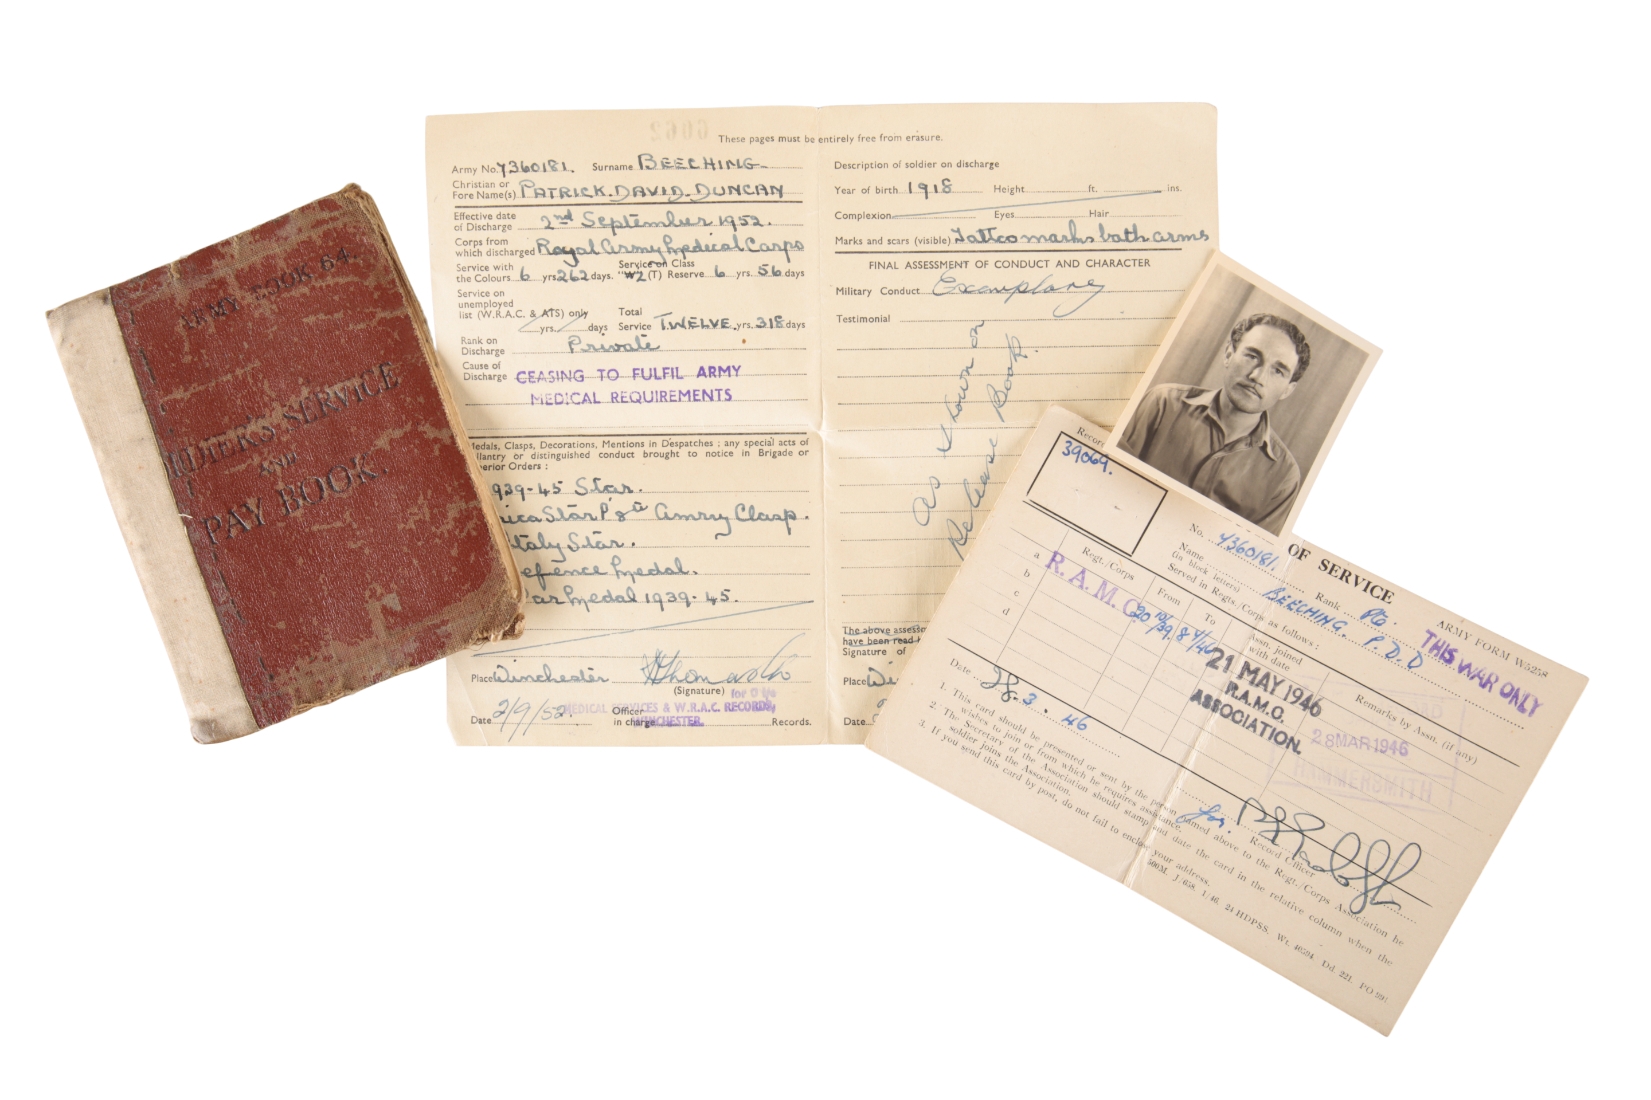 ARMY BOOK 64.
DIER'S SERVICE
AND
PAY BOOK
These pages must be entirely free from erasure.
Army No. 7360181. Surname BEECHING
Christian or
Fore Name(s) PATRICK. DAVID. DUNCAN
Effective date
of Discharge 2nd September 1952.
Corps from
which discharged Royal Army Medical Corps
Service with
the Colours 6 yrs 262 days. Service on Class "W2 (T) Reserve 6 yrs. 56 days
Service on
unemployed
list (W.R.A.C. & ATS) only
yrs. days
Total
Service TWELVE. yrs. 318 days
Rank on
Discharge Private
Cause of
Discharge CEASING TO FULFIL ARMY
MEDICAL REQUIREMENTS
Medals, Clasps, Decorations, Mentions in Despatches ; any special acts of
llantry or distinguished conduct brought to notice in Brigade or
perior Orders :
939-45 Star.
ica Star & 8th Amry Clasp.
Italy Star.
efence Medal.
ar Medal 1939-45.
Place Winchester
(Signature)
for O i/c
MEDICAL SERVICES & W.R.A.C. RECORDS,
WINCHESTER.
Date 2/9/52. Officer
in charge Records.
Description of soldier on discharge
Year of birth 1918 Height ft. ins.
Complexion Eyes Hair
Marks and scars (visible) Tattoo marks both arms
FINAL ASSESSMENT OF CONDUCT AND CHARACTER
Military Conduct Exemplary
Testimonial
as shown on
Release Book.
The above assess
have been read
Signature of
Place Wi
Date
Record
39069.
OF SERVICE
ARMY FORM W5258
No. 7360181. Rank Pte.
Name BEECHING. P. D. D
(in block letters)
Served in Regts./Corps as follows :
THIS WAR ONLY
Regt./Corps From To Assn. joined
with date Remarks by Assn. (if any)
a R.A.M.C. 20 10/39. 8 4/46
b
c
d
21 MAY 1946
R.A.M.C.
ASSOCIATION.
28 MAR 1946
HAMMERSMITH
Date 28. 3. 46
for. Record Officer
1. This card should be presented or sent by the person named above to the Regt./Corps Association he
wishes to join or from which he requires assistance.
2. The Secretary of the Association should stamp and date the card in the relative column when the
soldier joins the Association.
3. If you send this card by post, do not fail to enclose your address.
500M. J/658. 1/46. 24 HDPSS. Wt. 46594. Dd. 221.